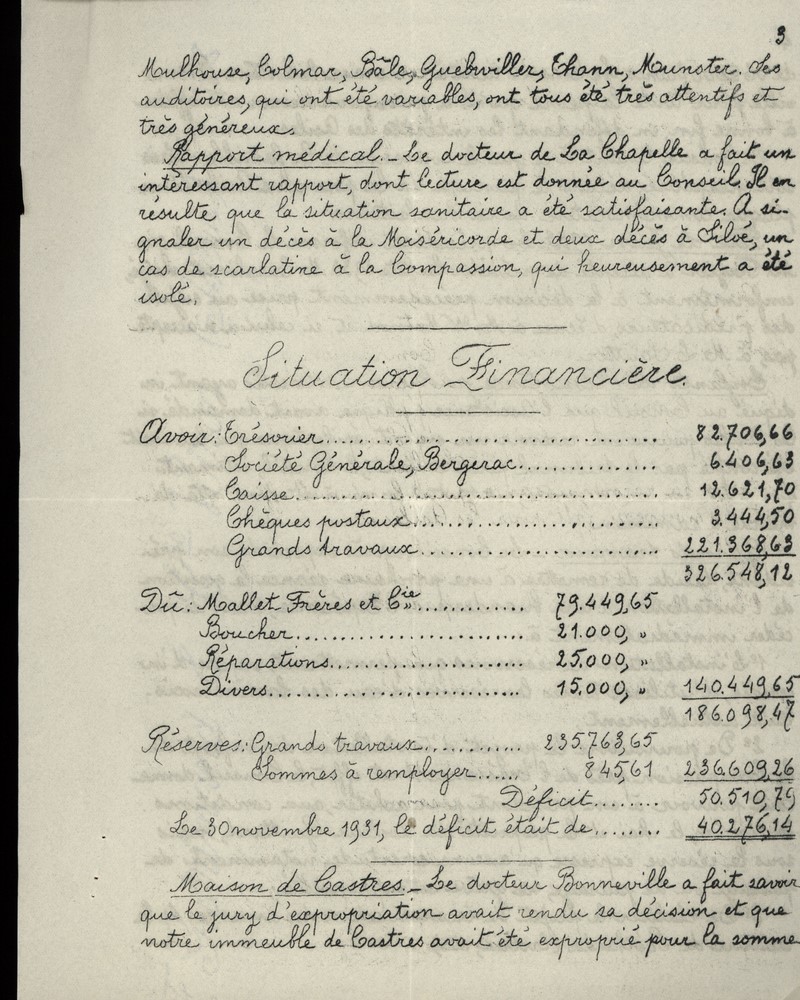 3
Mulhouse, Colmar, Bâle, Guebwiller, Thann, Munster. Ses
auditoires, qui ont été variables, ont tous été très attentifs et
très généreux.
Rapport médical._ Le docteur de La Chapelle a fait un
intéressant rapport, dont lecture est donnée au Conseil. Il en
résulte que la situation sanitaire a été satisfaisante. A si-
gnaler un décès à la Miséricorde et deux décès à Siloé, un
cas de scarlatine à la Compassion, qui heureusement a été
isolé.
Situation Financière.
Avoir: Trésorier........ 82.706,66
Société Générale, Bergerac........ 6.406,63
Caisse........ 12.621,70
Chèques postaux........ 3.444,50
Grands travaux........ 221.368,63
326.548,12
Dû: Mallet Frères et Cie........ 79.449,65
Boucher........ 21.000, "
Réparations........ 25.000, "
Divers........ 15.000, " 140.449,65
186.098,47
Réserves: Grands travaux........ 235.763,65
Sommes à remployer...... 845,61 236.609,26
Déficit........ 50.510,79
Le 30 novembre 1931, le déficit était de........ 40.276,14
Maison de Castres._ Le docteur Bonneville a fait savoir
que le jury d'expropriation avait rendu sa décision et que
notre immeuble de Castres avait été exproprié pour la somme